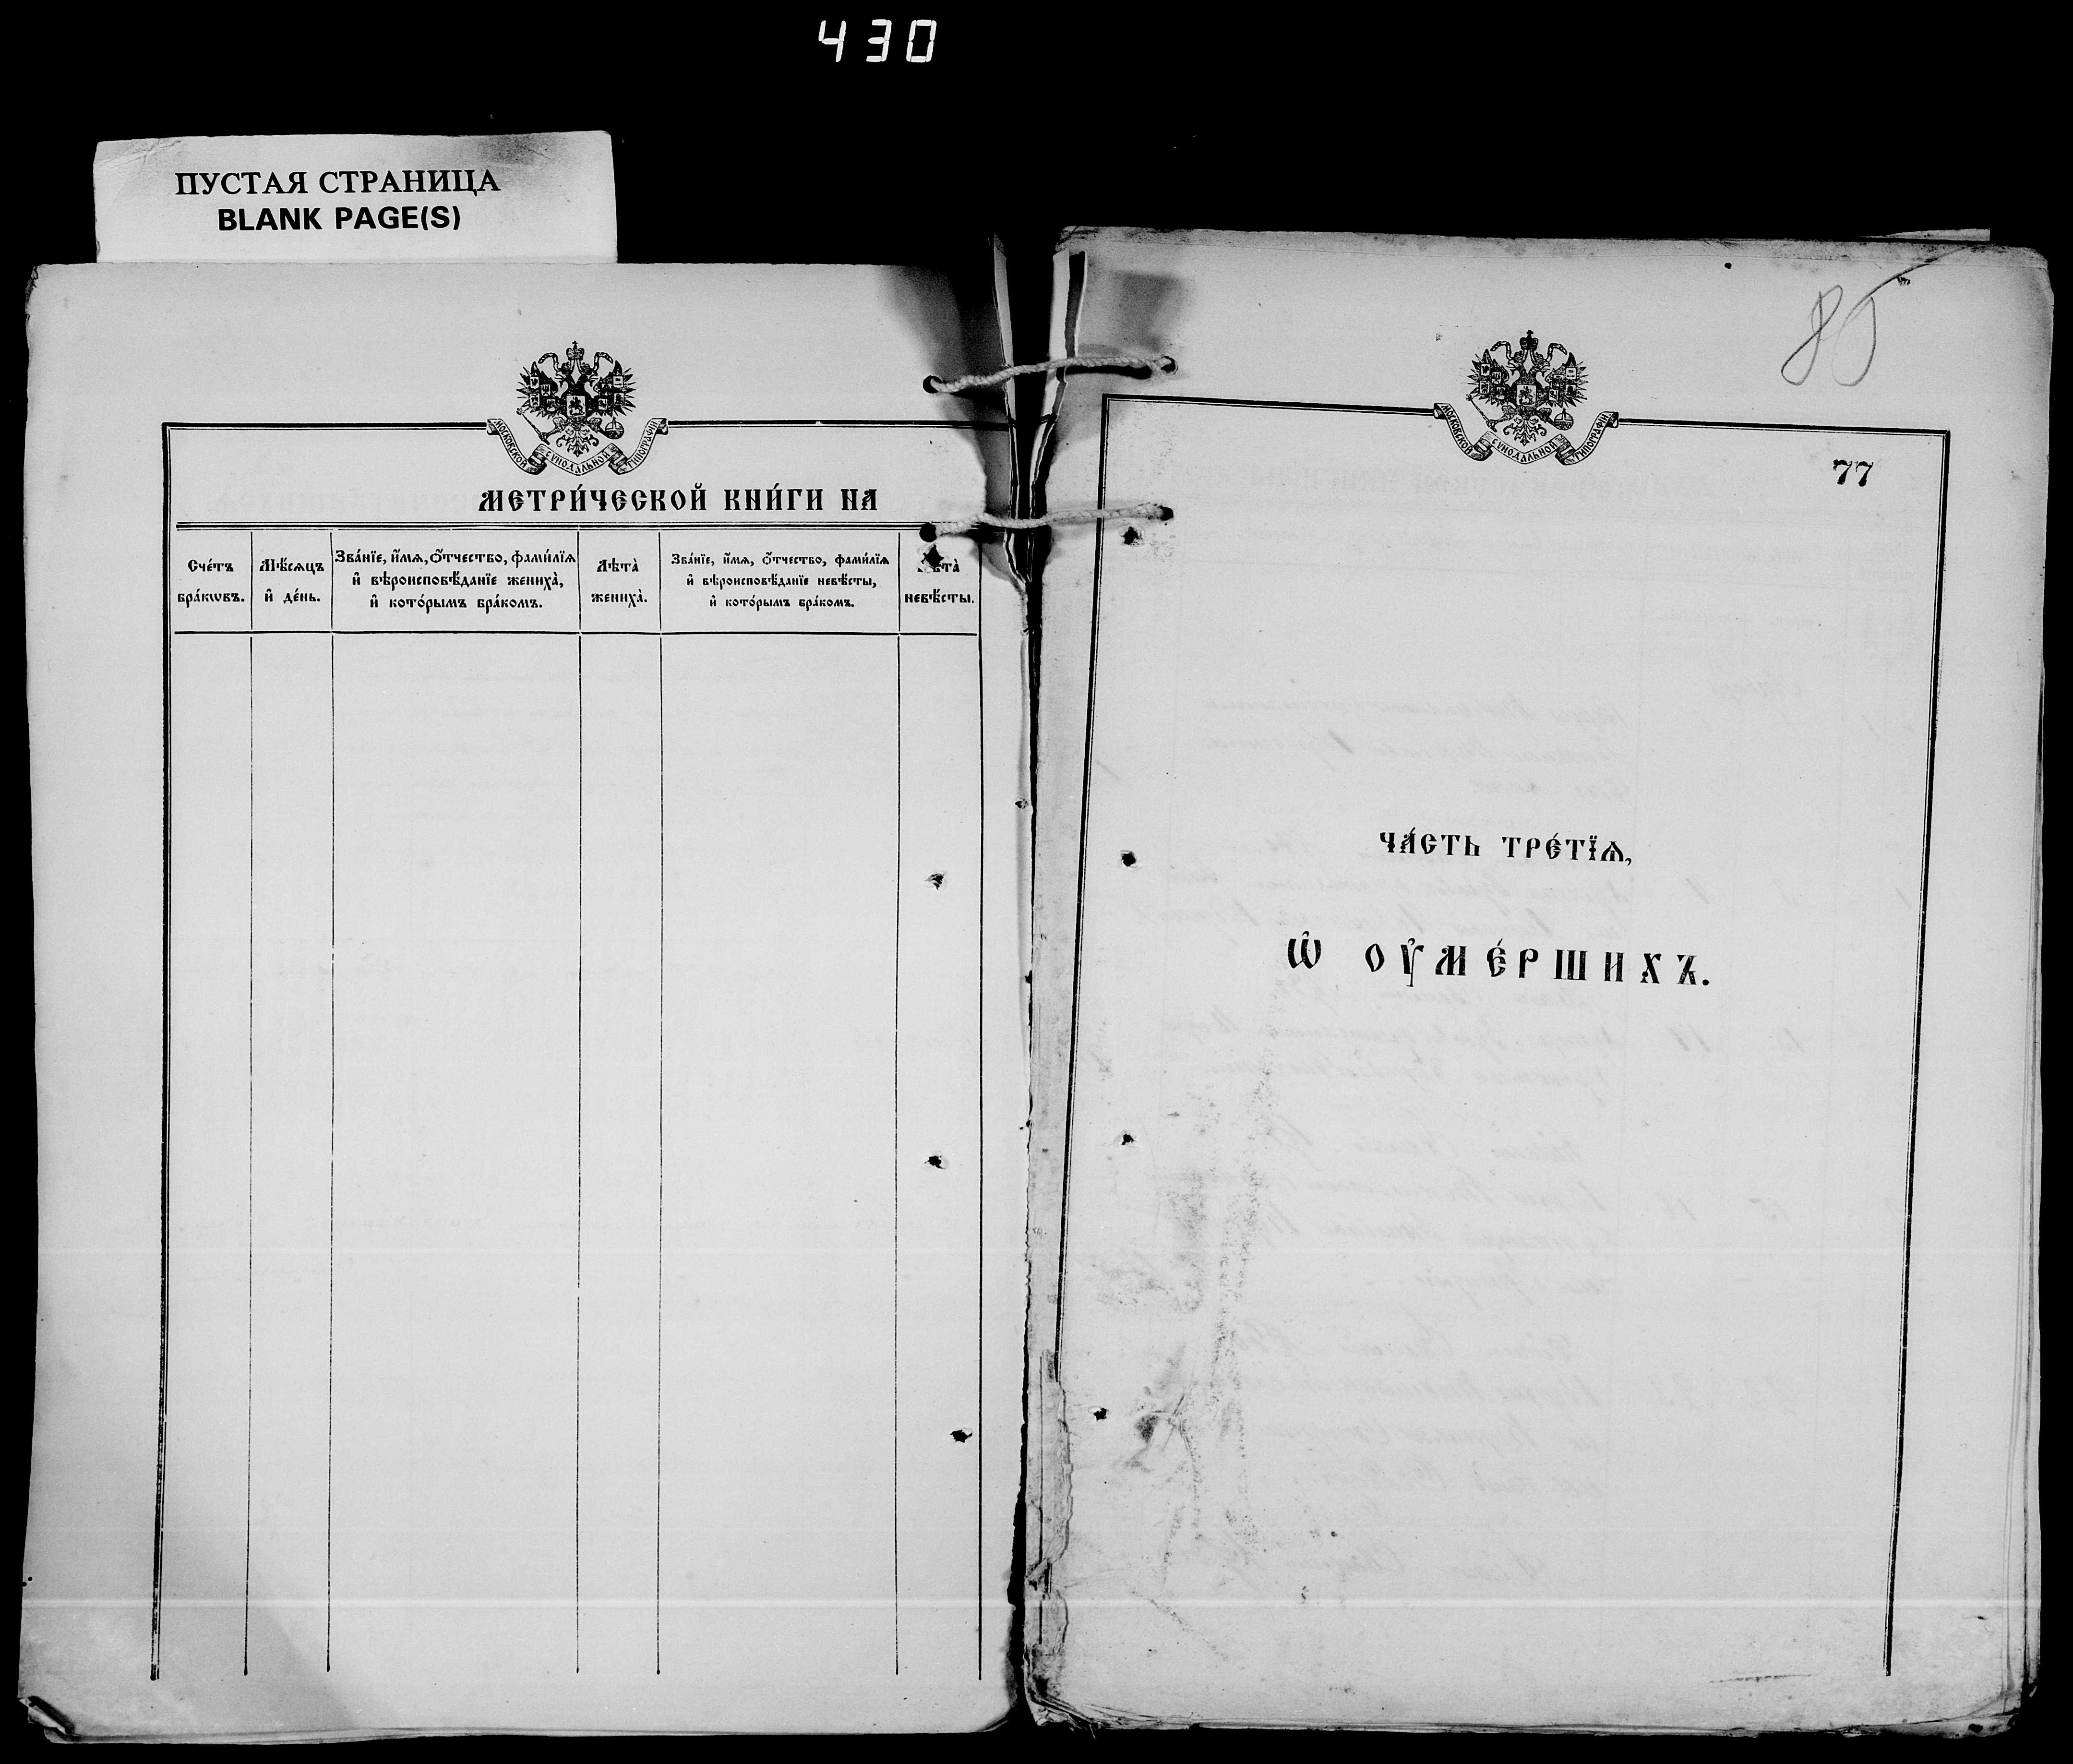 430
ПУСТАЯ СТРАНИЦА
BLANK PAGE(S)
МОСКОВСКОЙ СѴНОДАЛЬНОЙ ТИПОГРАФІИ
МЕТРИ́ЧЕСКОЙ КНИ́ГИ НА
Сче́тъ бра́кѡвъ.
Мѣ́сѧцъ и҆ де́нь.
Зва́нїе, и҆́мѧ, ѻ҆́тчество, фами́лїѧ
и҆ вѣроисповѣ́данїе жениха̀,
и҆ кото́рымъ бра́комъ.
Лѣта̀ жениха̀.
Зва́нїе, и҆́мѧ, ѻ҆́тчество, фами́лїѧ
и҆ вѣроисповѣ́данїе невѣ́сты,
и҆ кото́рымъ бра́комъ.
Лѣта̀ невѣ́сты.
85
МОСКОВСКОЙ СѴНОДАЛЬНОЙ ТИПОГРАФІИ
77
ЧА́СТЬ ТРЕ́ТЇѦ,
Ѡ҆ ОУ҆МЕ́РШИХЪ.